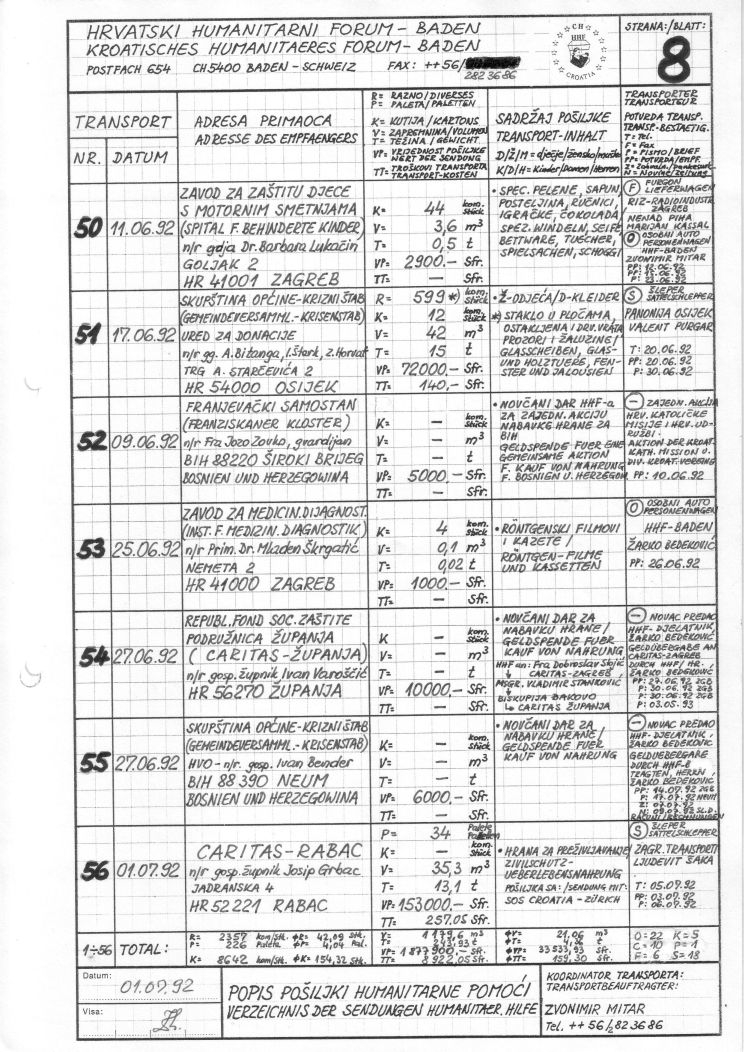 HRVATSKI HUMANITARNI FORUM – BADEN
KROATISCHES HUMANITAERES FORUM – BADEN
POSTFACH 654 CH 5400 BADEN – SCHWEIZ FAX: ++56/
282 36 86
CH
HHF
CROATIA
STRANA:/BLATT:
8
TRANSPORT
NR. DATUM
ADRESA PRIMAOCA
ADRESSE DES EMPFAENGERS
R= RAZNO/DIVERSES
P= PALETA/PALETTEN
K= KUTIJA/KARTONS
V= ZAPREMNINA/VOLUMEN
T= TEŽINA/GEWICHT
VP= VRIJEDNOST POŠILJKE
WERT DER SENDUNG
TT= TROŠKOVI TRANSPORTA
TRANSPORT-KOSTEN
SADRŽAJ POŠILJKE
TRANSPORT-INHALT
D/Ž/M = dječje/žensko/muško
K/D/H = Kinder/Damen/Herren
TRANSPORTER
TRANSPORTEUR
POTVRDA TRANSP.
TRANSP.-BESTAETIG.
T= Tel.
F= Fax
P= PISMO/BRIEF
PP= POTVRDA/EMPF.
N= Novine/Zeitung
50 11.06.92
ZAVOD ZA ZAŠTITU DJECE
S MOTORNIM SMETNJAMA
(SPITAL F. BEHINDERTE KINDER)
n/r gdja Dr. Barbara Lukačin
GOLJAK 2
HR 41001 ZAGREB
K= 44 kom. Stück
V= 3,6 m³
T= 0,5 t
VP= 2900.– Sfr.
TT= – Sfr.
• SPEC. PELENE, SAPUN,
POSTELJINA, RUČNICI,
IGRAČKE, ČOKOLADA/
SPEZ. WINDELN, SEIFE
BETTWARE, TUECHER,
SPIELSACHEN, SCHOGGI
F FURGON
LIEFERWAGEN
RIZ-RADIOINDUSTR.
ZAGREB
NENAD PIHA
MARIJAN KASSAL
O OSOBNI AUTO
PERSONENWAGEN
HHF-BADEN
ZVONIMIR MITAR
PP: 12.06.92
P: 23.06.92
51 17.06.92
SKUPŠTINA OPĆINE-KRIZNI ŠTAB
(GEMEINDEVERSAMML.-KRISENSTAB)
URED ZA DONACIJE
n/r gg. A. Bitanga, I. Štark, Z. Horvat
TRG A. STARČEVIĆA 2
HR 54000 OSIJEK
R= 599 *) kom. Stück
K= 12 kom. Stück
V= 42 m³
T= 15 t
VP= 72000.– Sfr.
TT= 140.– Sfr.
• Ž-ODJEĆA/D-KLEIDER
*) STAKLO U PLOČAMA,
OSTAKLJENA I DRV. VRATA
PROZORI I ŽALUZINE/
GLASSCHEIBEN, GLAS-
UND HOLZTUERE, FEN-
STER UND JALOUSIEN
S ŠLEPER
SATTELSCHLEPPER
PANONIJA OSIJEK
VALENT PURGAR
T: 20.06.92
PP: 20.06.92
P: 30.06.92
52 09.06.92
FRANJEVAČKI SAMOSTAN
(FRANZISKANER KLOSTER)
n/r Fra Jozo Zovko, gvardijan
BIH 88220 ŠIROKI BRIJEG
BOSNIEN UND HERZEGOWINA
K= – kom. Stück
V= – m³
T= – t
VP= 5000.– Sfr.
TT= – Sfr.
• NOVČANI DAR HHF-a
ZA ZAJEDN. AKCIJU
NABAVKE HRANE ZA
BIH
GELDSPENDE FUER EINE
GEMEINSAME AKTION
F. KAUF VON NAHRUNG
F. BOSNIEN U. HERZEGOW.
– ZAJEDN. AKCIJA
HRV. KATOLIČKE
MISIJE I HRV. UD-
RUŽBI.
AKTION DER KROAT.
KATH. MISSION U.
DIV. KROAT. VEREINE
PP: 10.06.92
53 25.06.92
ZAVOD ZA MEDICIN. DIJAGNOST.
(INST. F. MEDIZIN. DIAGNOSTIK)
n/r Prim. Dr. Mladen Škrgatić
NEMETA 2
HR 41000 ZAGREB
K= 4 kom. Stück
V= 0,1 m³
T= 0,02 t
VP= 1000.– Sfr.
TT= – Sfr.
• RÖNTGENSKI FILMOVI
I KAZETE/
RÖNTGEN-FILME
UND KASSETTEN
O OSOBNI AUTO
PERSONENWAGEN
HHF-BADEN
ŽARKO BEDEKOVIĆ
PP: 26.06.92
54 27.06.92
REPUBL. FOND SOC. ZAŠTITE
PODRUŽNICA ŽUPANJA
( CARITAS-ŽUPANJA)
n/r gosp. župnik Ivan Varoščić
HR 56270 ŽUPANJA
K – kom. Stück
V= – m³
T= – t
VP= 10000.– Sfr.
TT= – Sfr.
• NOVČANI DAR ZA
NABAVKU HRANE/
GELDSPENDE FUER
KAUF VON NAHRUNG
HHF an: Fra Dobroslav Stojić
↳ CARITAS-ZAGREB,
MSGR. VLADIMIR STANKOVIĆ
BISKUPIJA ĐAKOVO
↳ CARITAS ŽUPANJA
– NOVAC PREDAO
HHF-DJELATNIK
ŽARKO BEDEKOVIĆ
GELDÜBERGABE AN
CARITAS-ZAGREB
DURCH HHF/HR.,
ŽARKO BEDEKOVIĆ
PP: 29.06.92 ZGB
P: 30.06.92 ZGB
P: 30.06.92 ZGB
P: 03.05.93
55 27.06.92
SKUPŠTINA OPĆINE-KRIZNI ŠTAB
(GEMEINDEVERSAMML.-KRISENSTAB)
HVO – n/r. gosp. Ivan Bender
BIH 88 390 NEUM
BOSNIEN UND HERZEGOWINA
K= – kom. Stück
V= – m³
T= – t
VP= 6000.– Sfr.
TT= – Sfr.
• NOVČANI DAR ZA
NABAVKU HRANE/
GELDSPENDE FUER
KAUF VON NAHRUNG
– NOVAC PREDAO
HHF-DJELATNIK,
ŽARKO BEDEKOVIĆ
GELDUEBERGABE
DURCH HHF-B
ŽARKO BEDEKOVIĆ
PP: 14.07.92 ZGB
P: 17.07.92 NEUM
RAČUNI/RECHNUNGEN
56 01.07.92
CARITAS-RABAC
n/r gosp. župnik Josip Grbac
JADRANSKA 4
HR 52221 RABAC
P= 34 Palete Paletten
K= – kom. Stück
V= 35,3 m³
T= 13,1 t
VP= 153000.– Sfr.
TT= 257.05 Sfr.
• HRANA ZA PREŽIVLJAVANJE/
ZIVILSCHUTZ-
UEBERLEBENSNAHRUNG
POŠILJKA SA:/SENDUNG MIT:
SOS CROATIA – ZÜRICH
S ŠLEPER
SATTELSCHLEPPER
ZAGR. TRANSPORTI
LJUDEVIT SAKA
T: 05.07.92
PP: 03.07.92
P: 06.07.92
1÷56 TOTAL:
R= 2357 kom/Stk. ØR= 42,09 Stk.
P= 226 Paleta ØP= 4,04 Pal.
K= 8642 kom/Stk. ØK= 154,32 Stk.
V= 1179,6 m³
T= 243,93 t
VP= 1877900.– Sfr.
TT= 8922.05 Sfr.
ØV= 21,06 m³
ØT= 4,36 t
ØVP= 33533,93 Sfr.
ØTT= 159,30 Sfr.
O=22 K=5
C=10 P=1
F=6 S=18
Datum:
01.07.92
Visa:
POPIS POŠILJKI HUMANITARNE POMOĆI
VERZEICHNIS DER SENDUNGEN HUMANITAER. HILFE
KOORDINATOR TRANSPORTA:
TRANSPORTBEAUFTRAGTER:
ZVONIMIR MITAR
Tel. ++ 56/2823686